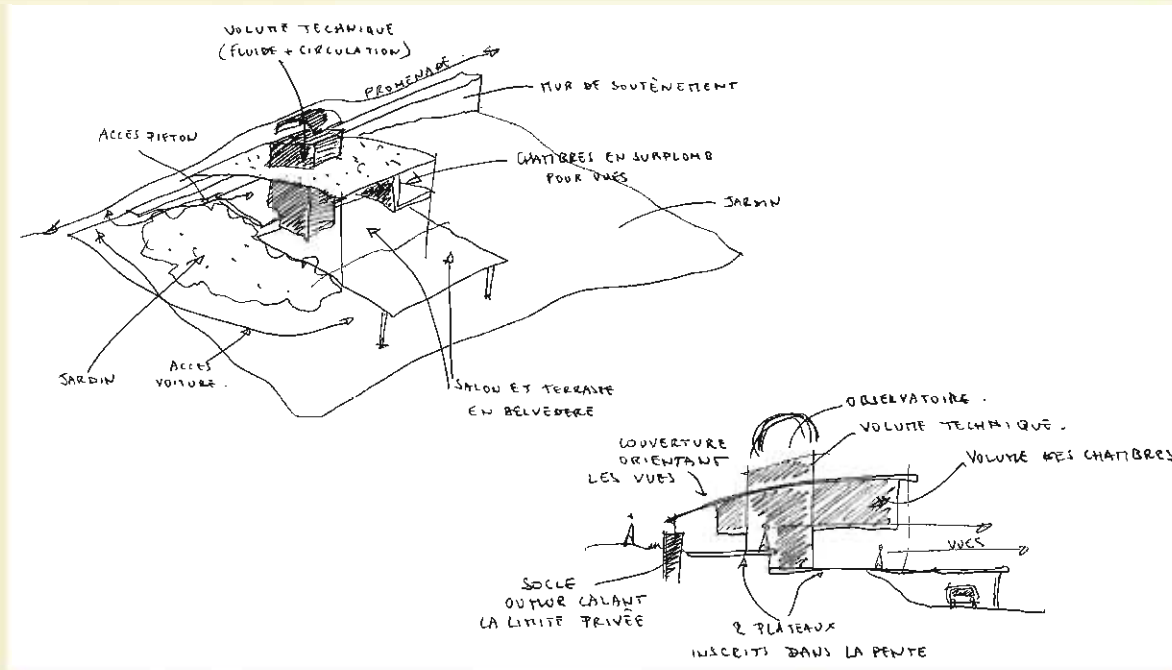 VOLUME TECHNIQUE
(FLUIDE + CIRCULATION)
PROMENADE.
MUR DE SOUTÈNEMENT
ACCES PIETON
CHAMBRES EN SURPLOMB
POUR VUES
JARDIN
JARDIN
ACCES
VOITURE.
SALON ET TERRASSE
EN BELVEDERE
OBSERVATOIRE.
VOLUME TECHNIQUE.
COUVERTURE
ORIENTANT
LES VUES
VOLUME DES CHAMBRES
VUES
SOCLE
OU MUR CALANT
LA LIMITE PRIVÉE
2 PLATEAUX
INSCRITS DANS LA PENTE